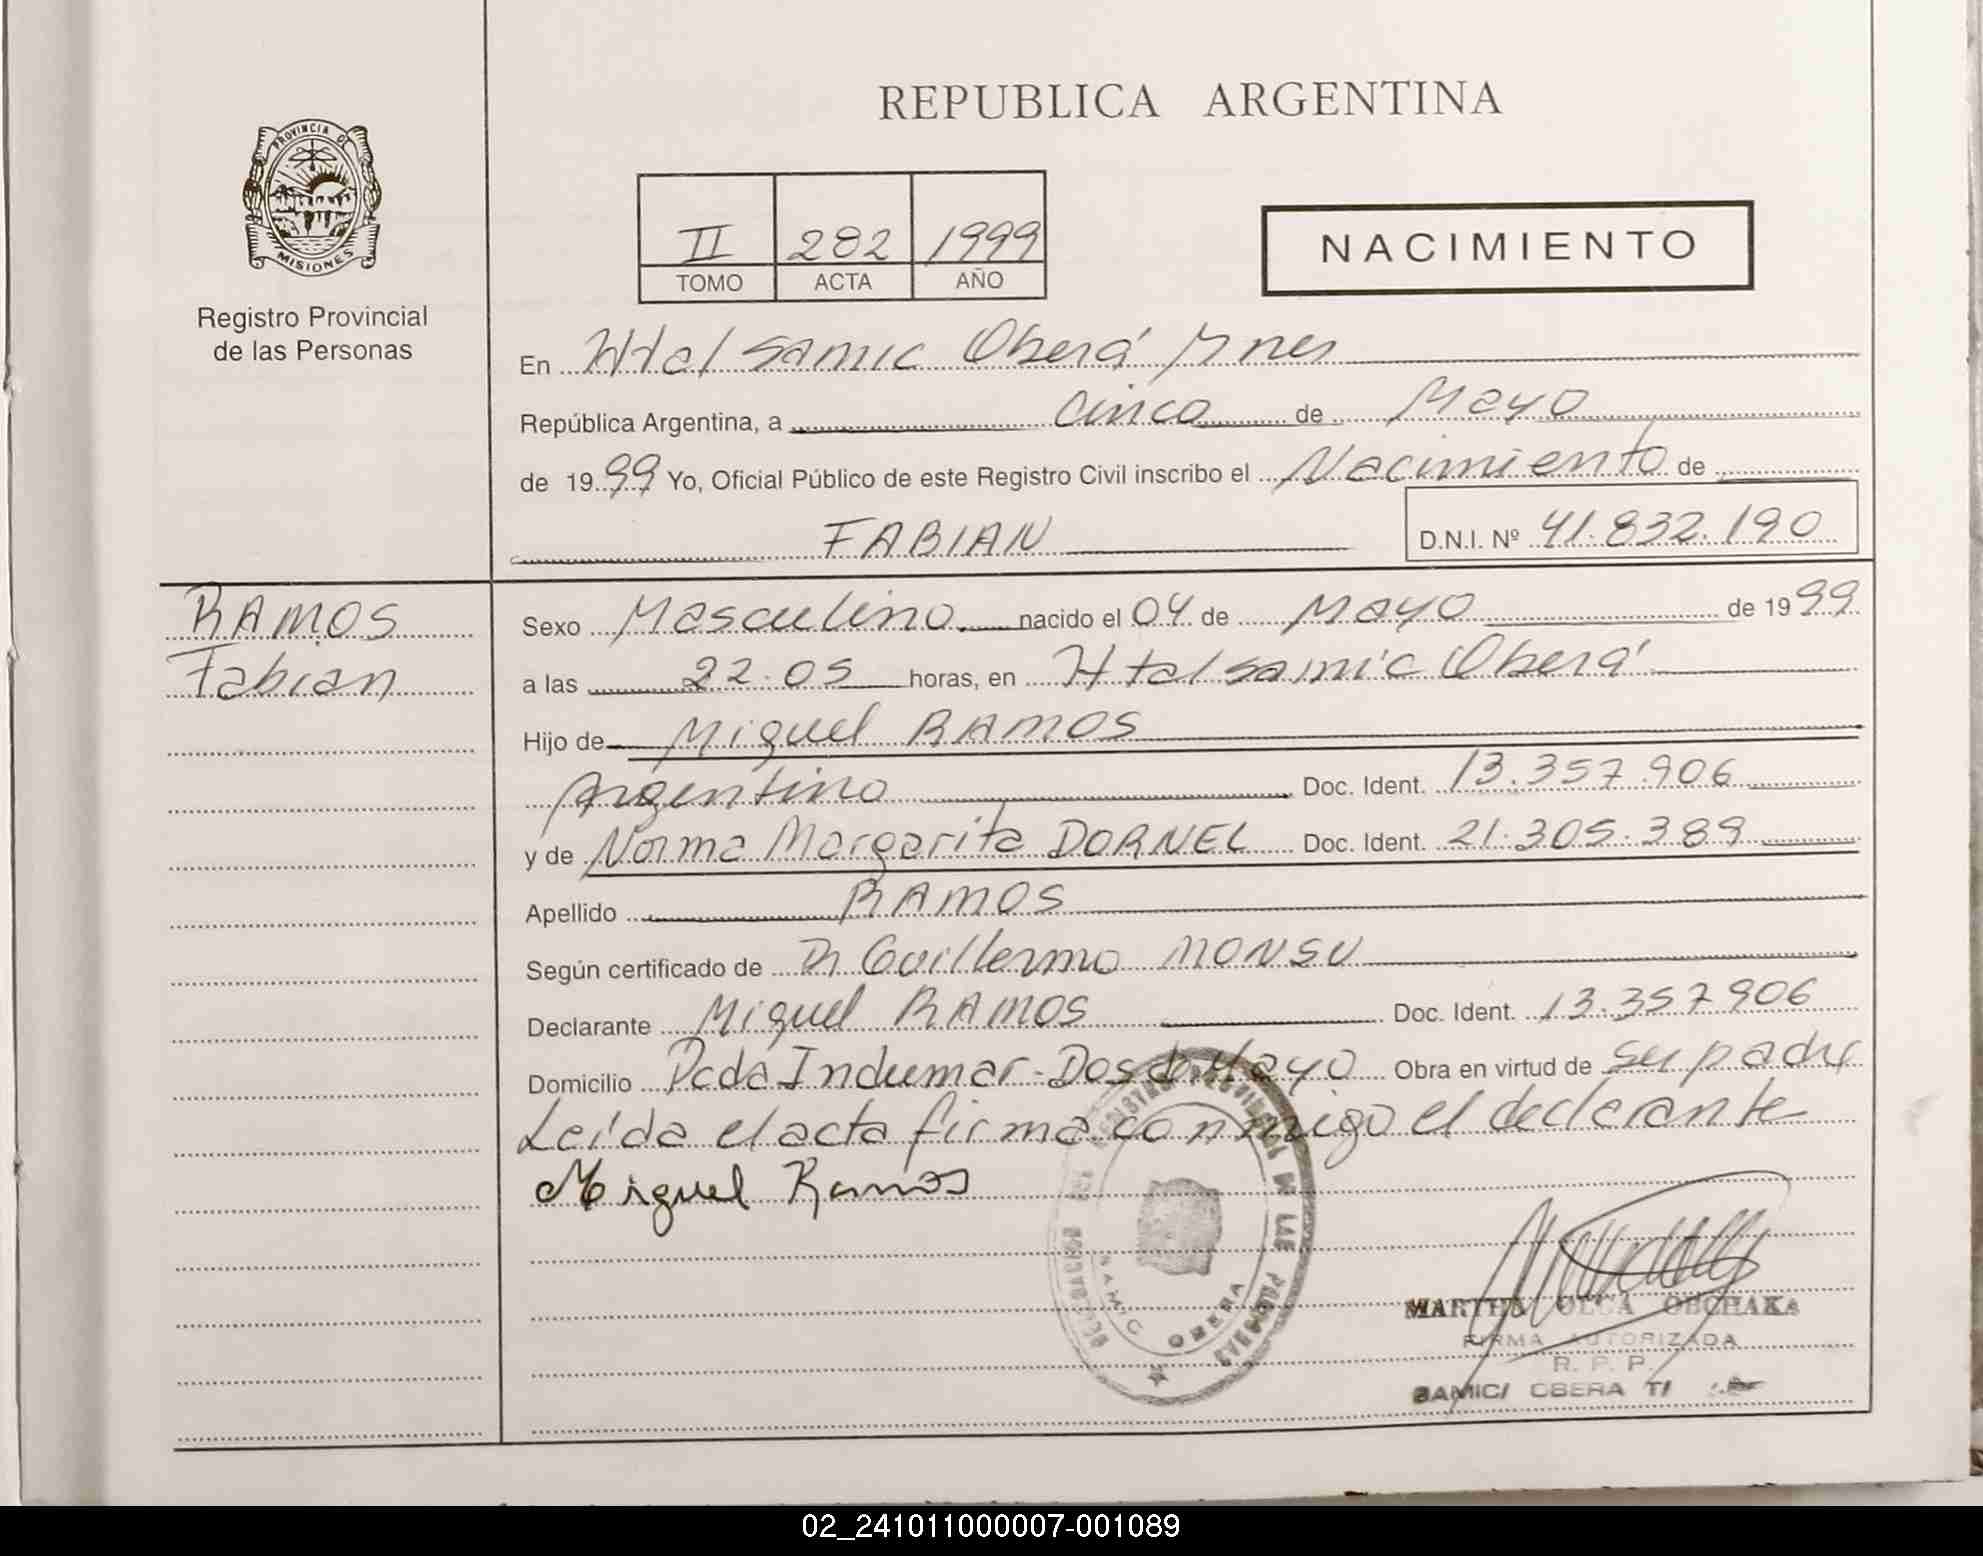 REPUBLICA ARGENTINA
PROVINCIA DE
MISIONES
Registro Provincial
de las Personas
II 282 1999
TOMO ACTA AÑO
NACIMIENTO
En Htal Samic Oberá Mnes
República Argentina, a cinco de Mayo
de 1999 Yo, Oficial Público de este Registro Civil inscribo el Nacimiento de
FABIAN D.N.I. Nº 41.832.190
RAMOS
Fabian
Sexo Masculino nacido el 04 de Mayo de 1999
a las 22.05 horas, en Htal samic Oberá
Hijo de Miguel RAMOS
Argentino Doc. Ident. 13.357.906
y de Norma Margarita DORNEL Doc. Ident. 21.305.389
Apellido RAMOS
Según certificado de Dr Guillermo MONSU
Declarante Miguel RAMOS Doc. Ident. 13.357906
Domicilio Pcda Indumar-Dos de Mayo Obra en virtud de su padre
Leída el acta firma conmigo el declarante
Miguel Ramos
REGISTRO PROVINCIAL DE LAS PERSONAS
SAMIC OBERA
MARTHA OLGA OBCHAKA
FIRMA AUTORIZADA
R. P. P.
SAMIC/ OBERA
02_241011000007-001089